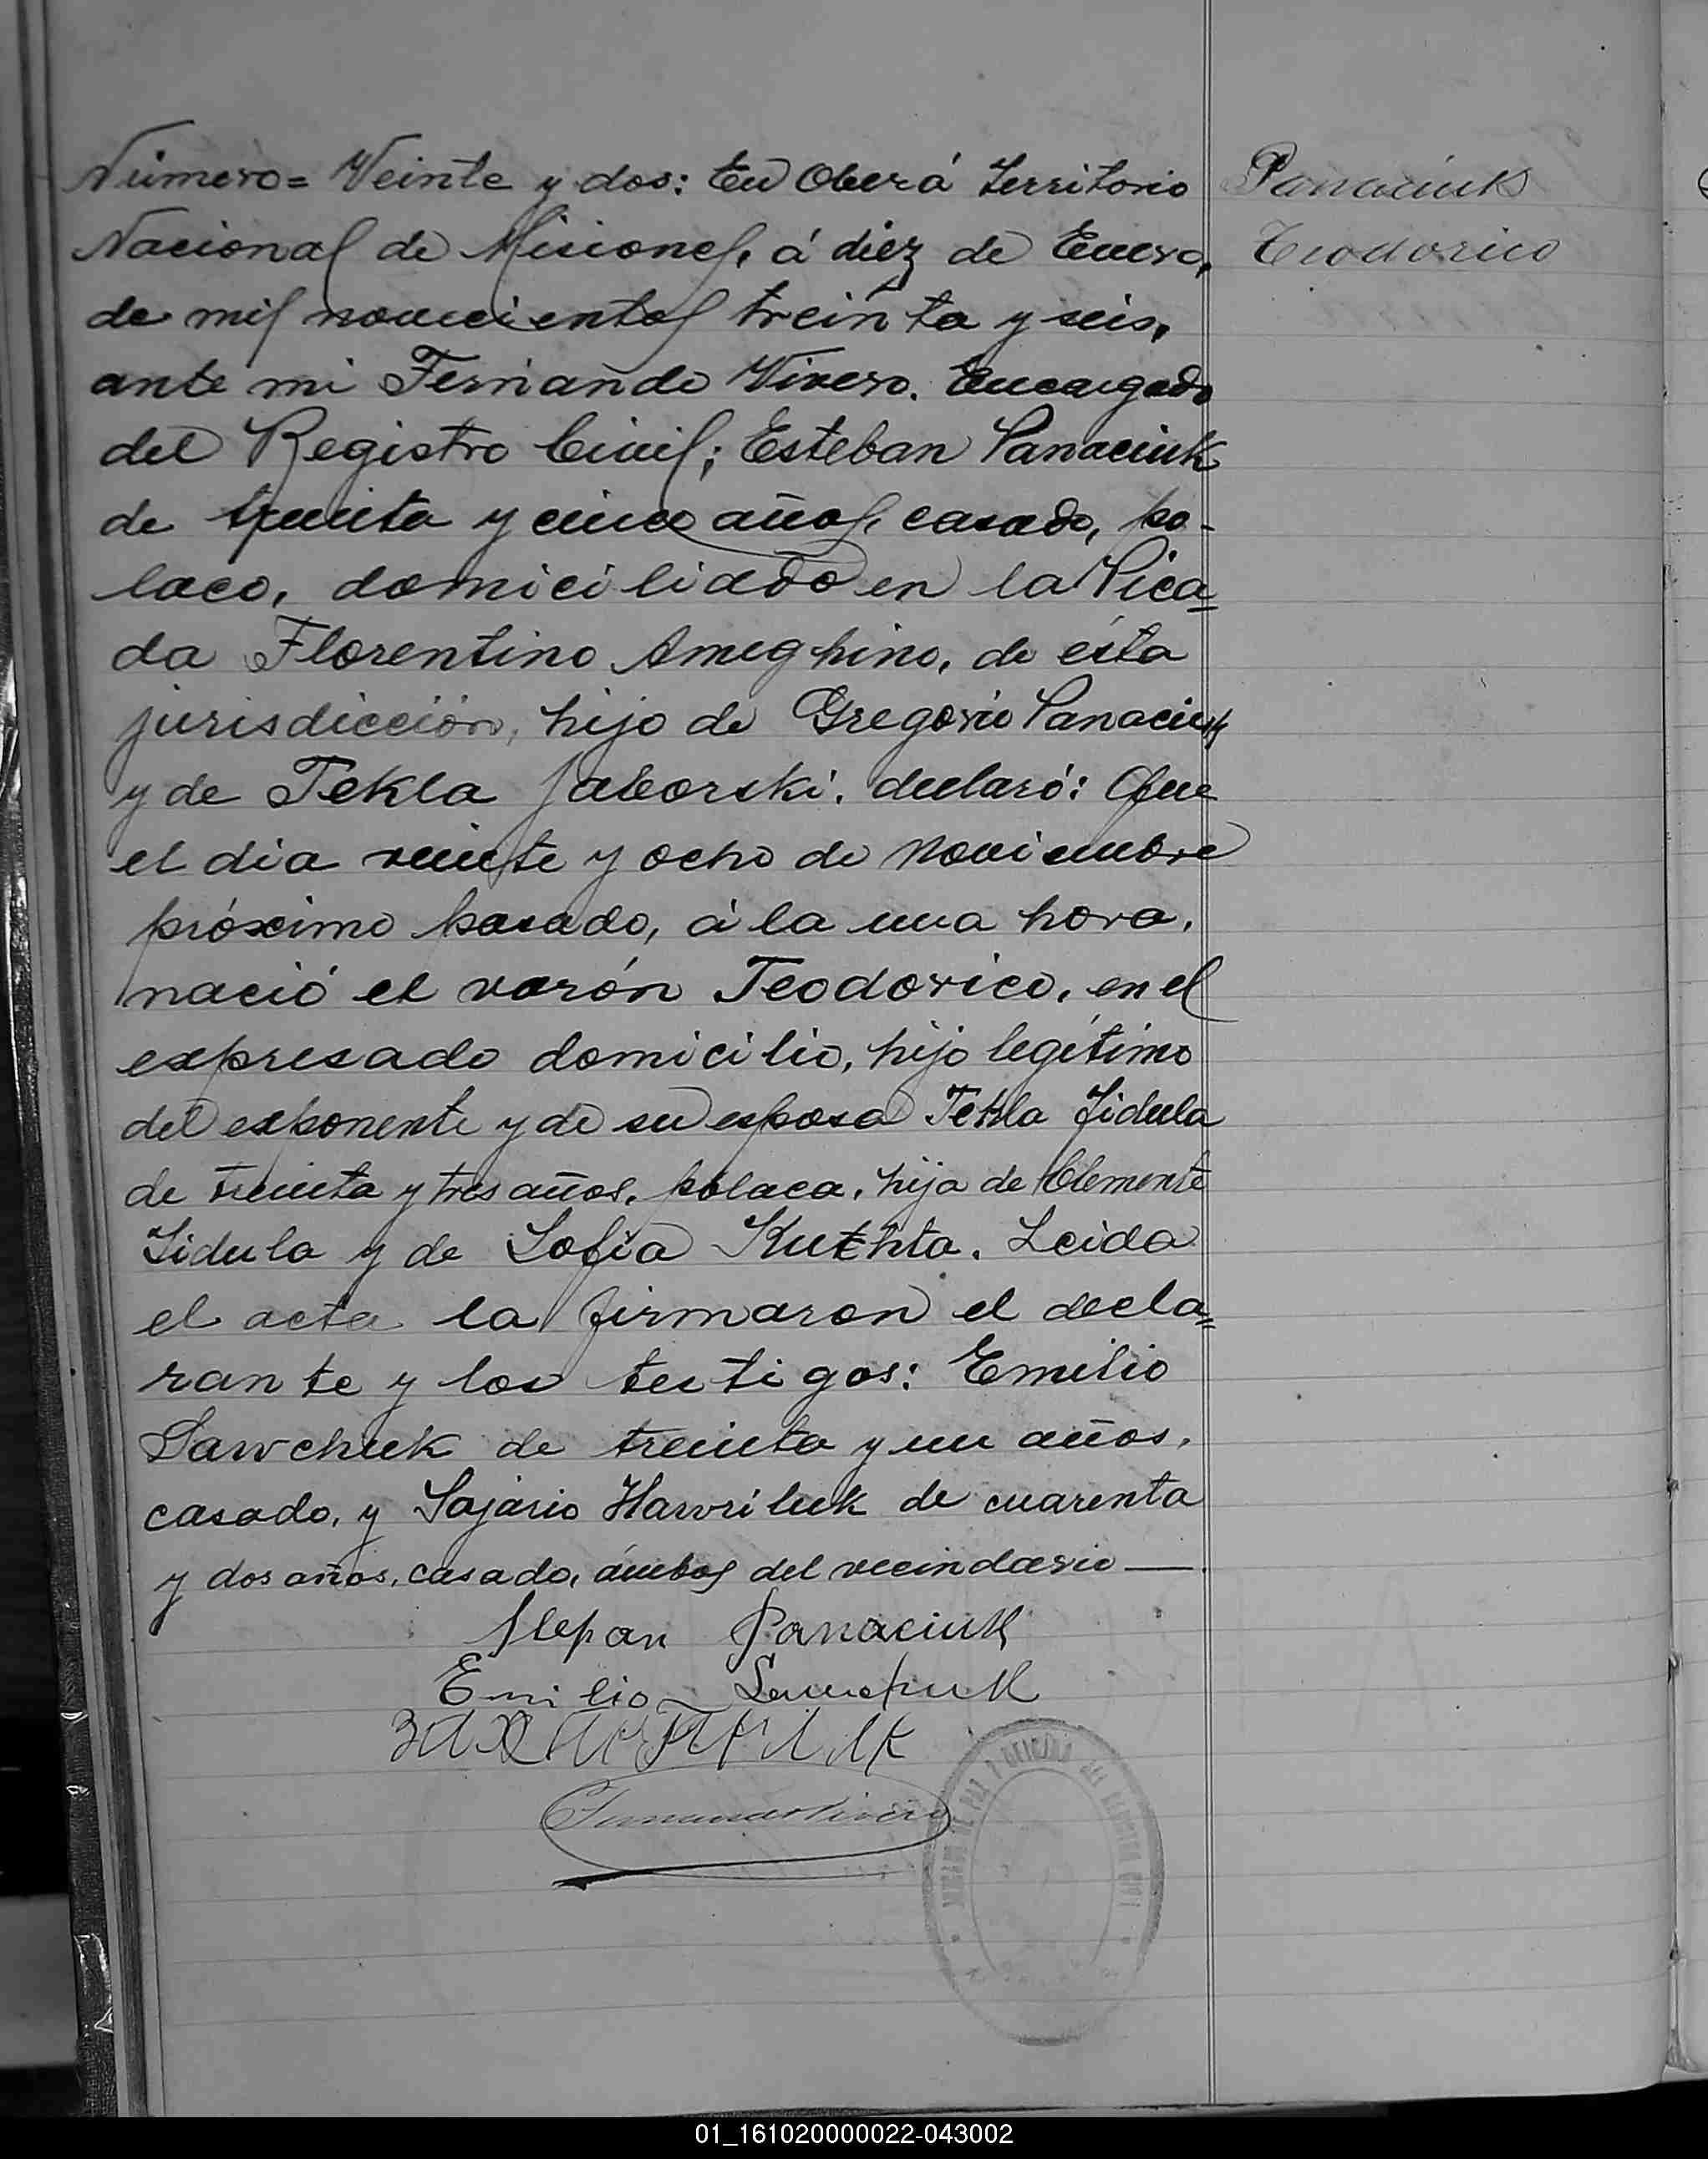 Número= Veinte y dos: En Oberá Territorio
Nacional de Misiones, á diez de Enero,
de mil novecientos treinta y seis,
ante mi Fernando Vivero. Encargado
del Registro Civil; Esteban Panaciuk
de treinta y cinco años, casado, po-
laco, domiciliado en la Pica=
da Florentino Ameghino, de ésta
jurisdicción, hijo de Gregorio Panaciuk
y de Tekla Jaborski, declaró: Que
el dia veinte y ocho de Noviembre
próximo pasado, á la una hora,
nació el varón Teodorico, en el
expresado domicilio, hijo legítimo
del exponente y de su esposa Tekla Zidula
de treinta y tres años, polaca, hija de Clemente
Zidula y de Sofia Kuthta. Leida
el acta la firmaron el decla=
rante y los testigos: Emilio
Sawchuk de treinta y un años,
casado, y Sajario Hawriluk de cuarenta
y dos años, casado, ámbos del vecindario —
Stepan Panaciuk
Emilio Sawchuk
Fernando Vivero
Panaciuk
Teodorico
01_161020000022-043002